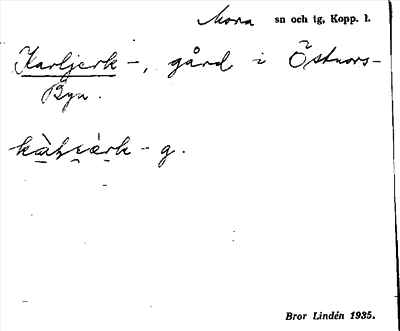 Mora sn och tg, Kopp. l.
Karljerk -, gård i Östnors-
Byn.
- g.
Bror Lindén 1935.